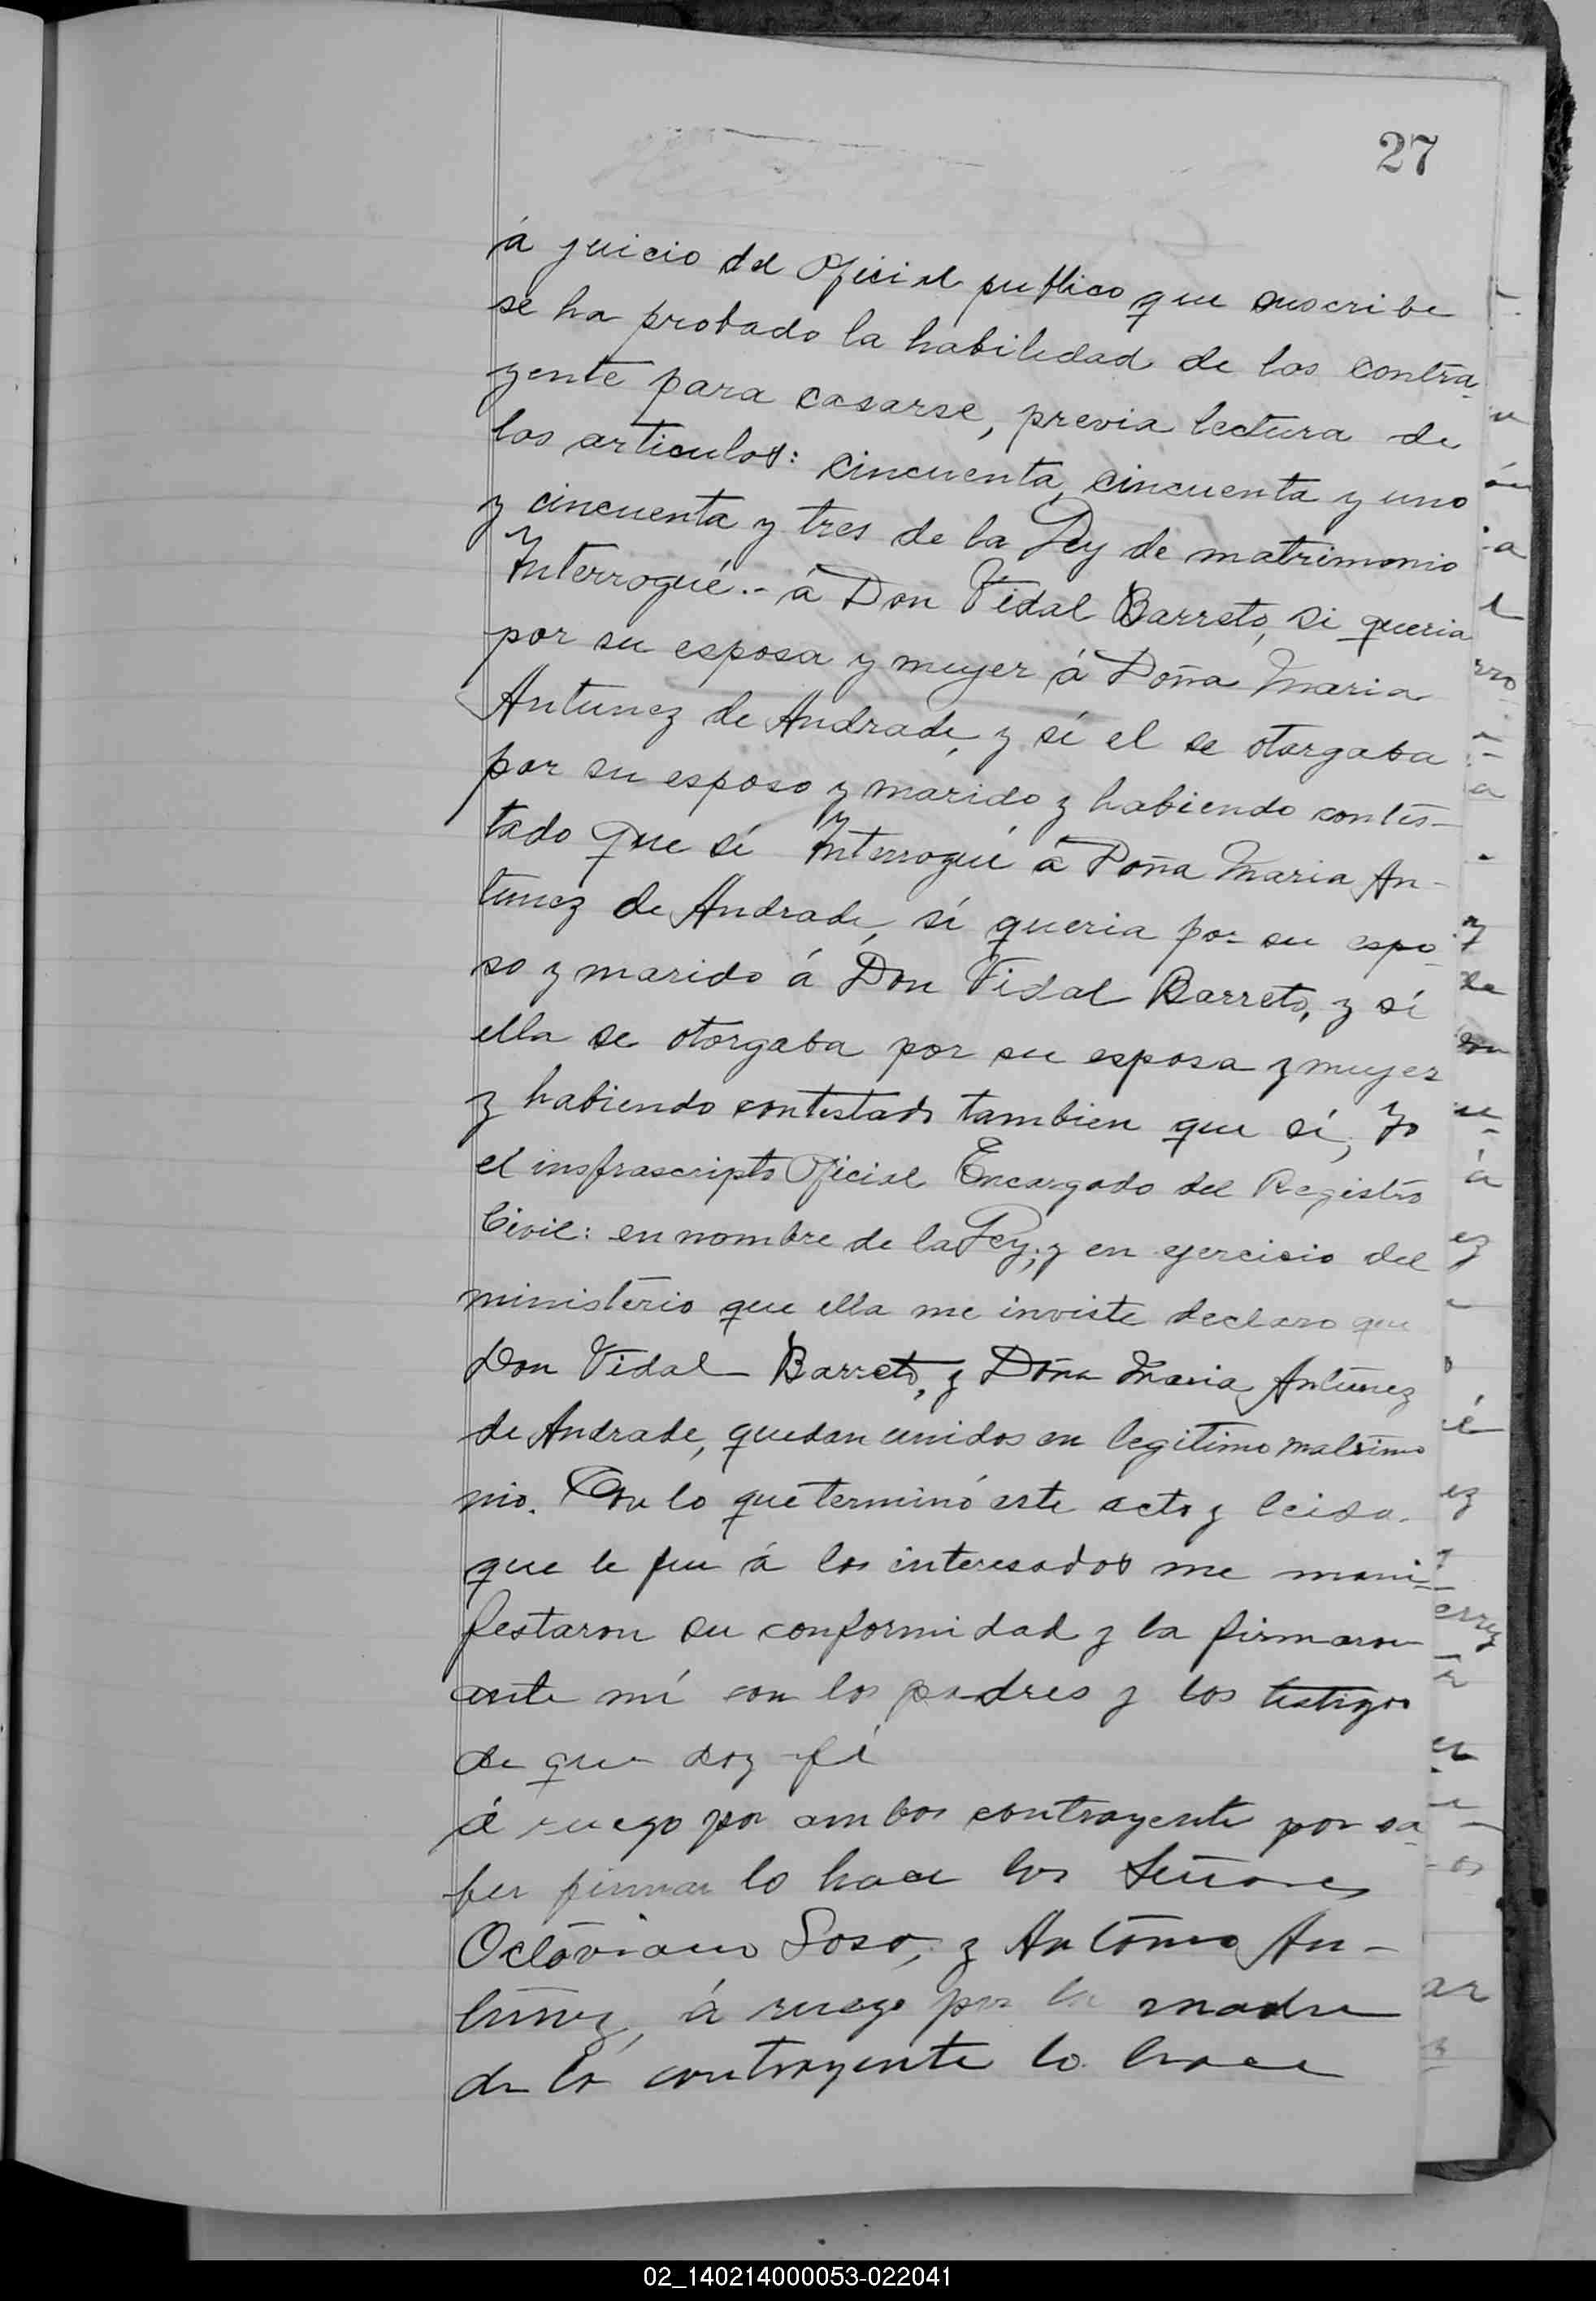 27
á juicio del Oficial publico que suscribe
se ha probado la habilidad de los contra-
yente para casarse, previa lectura de
los articulos: cincuenta, cincuenta y uno
y cincuenta y tres de la Ley de matrimonio
Interrogué.- á Don Vidal Barreto, si queria
por su esposa y mujer á Doña Maria
Antunez de Andrade, y sí el se otorgaba
por su esposo y marido y habiendo contes-
tado que sí Interrogué á Doña Maria An-
tunez de Andrade, sí queria por su espo-
so y marido á Don Vidal Barreto, y sí
ella se otorgaba por su esposa y mujer
y habiendo contestado tambien que sí, Yo
el insfrascripto Oficial Encargado del Registro
Civil: en nombre de la Ley; y en ejercisio del
ministerio que ella me inviste declaro que
Don Vidal Barreto, y Doña Maria Antunez
de Andrade, quedan unidos en legitimo matrimo
nio. Con lo que terminó este acto y leida
que le fue á los interesados me mani-
festaron su conformidad y la firmaron
ante mí con los padres y los testigos
de que doy fé
á ruego por ambos contrayente por sa-
ber firmar lo hace los Señores
Octaviano Soso, y Antonio An-
tunez, á ruego por la madre
de la contrayente lo hace
02_140214000053-022041